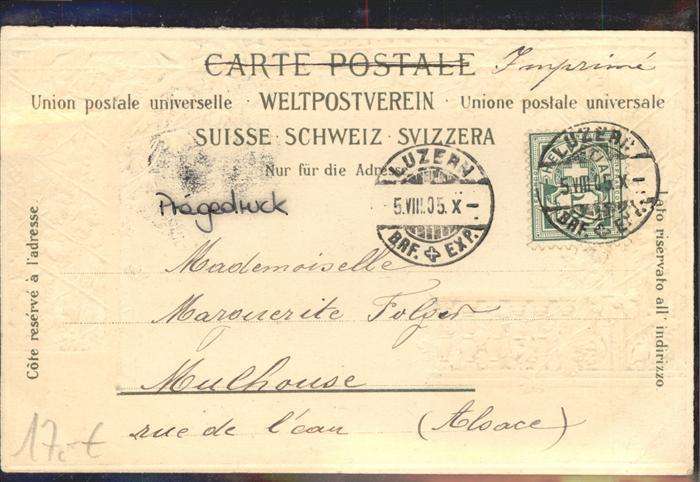 CARTE POSTALE Imprimé
Union postale universelle · WELTPOSTVEREIN · Unione postale universale
SUISSE · SCHWEIZ · SVIZZERA
Nur für die Adresse
LUZERN
5.VIII.05. X –
BRF. + EXP.
LUZERN
5.VIII.05. X –
BRF. + EXP.
Prägedruck
Côte resérvé à l'adresse
Lato riservato all' indirizzo
Mademoiselle
Marguerite Folger
Mulhouse
rue de l'eau (Alsace)
17,-€